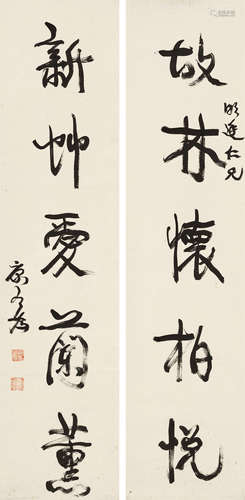 故林懷柏悅
仁兄
新艸愛蘭薰
康有為